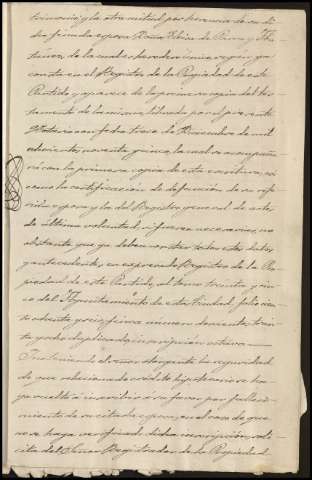 trimonio, y la otra mitad por herencia de su di-
funta esposa Doña Elvira de
de la cual es heredero único, segun
consta en el Registro de la Propiedad de este
Partido y aparece de la primera copia del tes-
tamento de la misma, librada por el presente
Notario con fecha trece de Diciembre de mil
ochocientos noventa y cinco, la cual se acompaña-
rá con la primera copia de esta escritura, así
como la certificacion de defuncion de su refe-
rida esposa y la del Registro general de actos
de última voluntad, si fueran necesarios, no
obstante que ya deben constar todos estos datos
y antecedentes, en expresado Registro de la Pro-
piedad de este Partido, al tomo treinta y cin-
co del Ayuntamiento de esta Ciudad, folio cien-
to ochenta y seis, finca número doscientos trein-
ta y ocho duplicado, inscripción octava.
Interiniendo el señor otorgante la seguridad
de que relacionado crédito hipotecario se ha-
ya vuelto á inscribir á su favor por falleci-
miento de su citada esposa, en el caso de que
no se haya verificado dicha inscripción, soli-
cita del Señor Registrador de la Propiedad